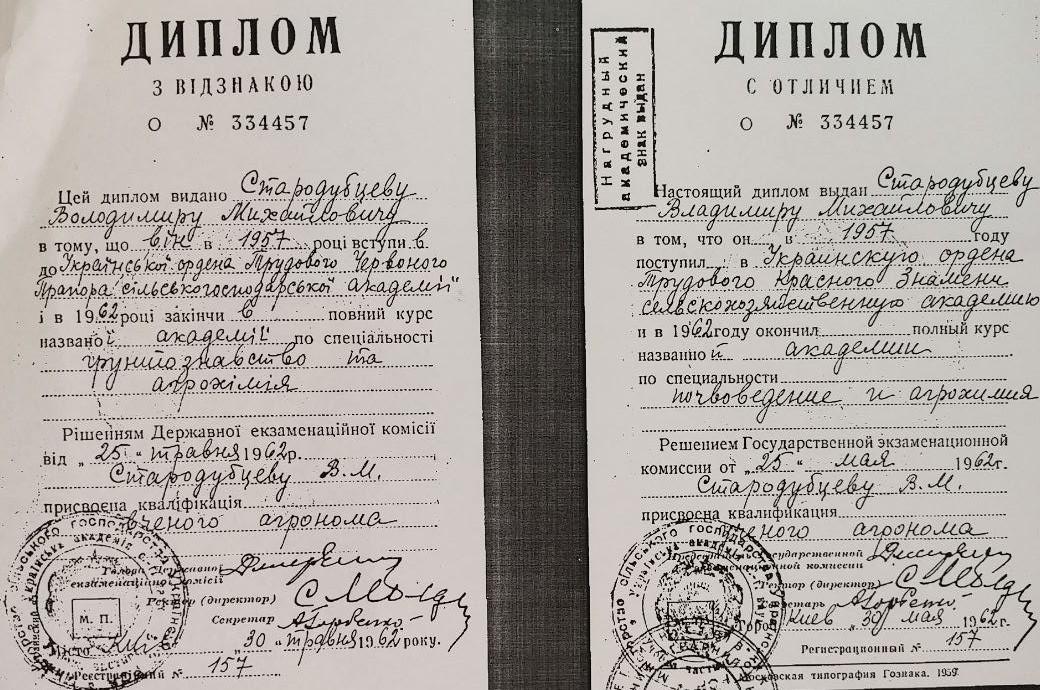 ДИПЛОМ
З ВІДЗНАКОЮ
О № 334457
Цей диплом видано Стародубцеву
Володимиру Михайловичу
в тому, що він в 1957 році вступив
до Української ордена Трудового Червоного
Прапора сільськогосподарської академії
і в 1962 році закінчив повний курс
названої академії по спеціальності
грунтознавство та
агрохімія
Рішенням Державної екзаменаційної комісії
від „25" травня 1962 р.
Стародубцеву В. М.
присвоєна кваліфікація
вченого агронома
Голова Державної
екзаменаційної комісії
Ректор (директор)
Секретар
М. П.
Місто Київ „30" травня 1962 року.
Реєстраційний № 157
Нагрудный
академический
знак выдан
ДИПЛОМ
С ОТЛИЧИЕМ
О № 334457
Настоящий диплом выдан Стародубцеву
Владимиру Михайловичу
в том, что он в 1957 году
поступил в Украинскую ордена
Трудового Красного Знамени
сельскохозяйственную академию
и в 1962 году окончил полный курс
названной академии
по специальности
почвоведение и агрохимия
Решением Государственной экзаменационной
комиссии от „25" мая 1962 г.
Стародубцеву В. М.
присвоена квалификация
ученого агронома
Председатель Государственной
экзаменационной комиссии
Ректор (директор)
Секретарь
Город Киев „30" мая 1962 г.
Регистрационный № 157
Московская типография Гознака. 1959.